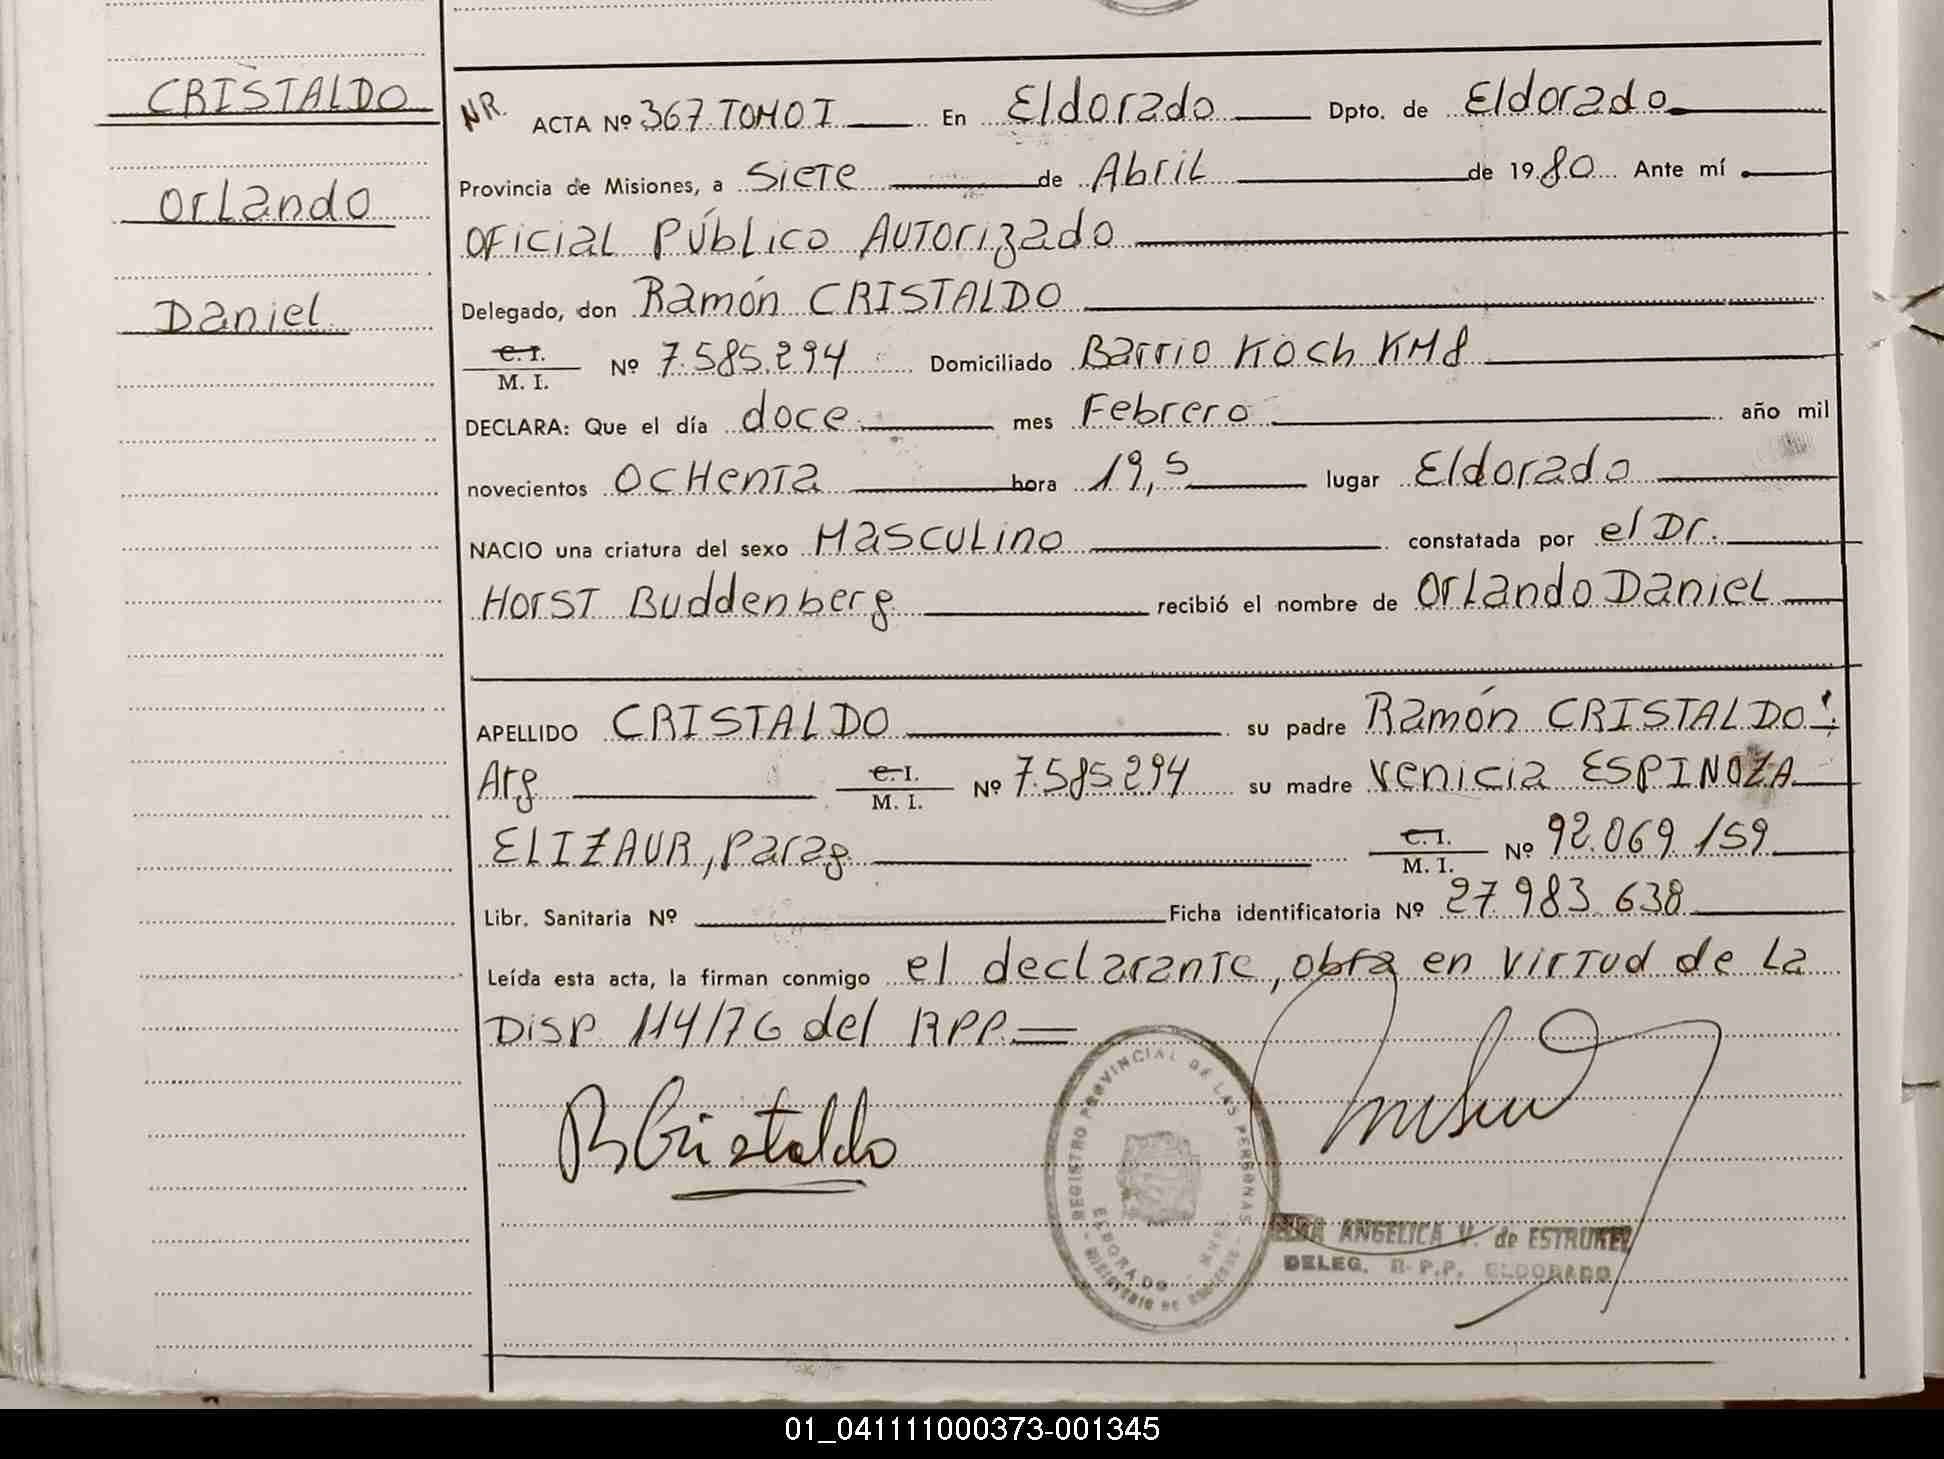 CRISTALDO
Orlando
Daniel
NR. ACTA Nº 367 TOMO I En Eldorado Dpto. de Eldorado
Provincia de Misiones, a Siete de Abril de 1980 Ante mí
Oficial Público Autorizado
Delegado, don Ramón CRISTALDO
C. I. M. I. Nº 7.585.294 Domiciliado Barrio Koch KM8
DECLARA: Que el día doce mes Febrero año mil
novecientos Ochenta hora 19,5 lugar Eldorado
NACIO una criatura del sexo Masculino constatada por el Dr.
Horst Buddenberg recibió el nombre de Orlando Daniel
APELLIDO CRISTALDO su padre Ramón CRISTALDO
Arg C. I. M. I. Nº 7.585.294 su madre Venicia ESPINOZA
ELIZAUR, Parag C. I. M. I. Nº 92.069.159
Libr. Sanitaria Nº Ficha identificatoria Nº 27.983.638
Leída esta acta, la firman conmigo el declarante, obra en virtud de la
Disp. 114/76 del RPP.
R Cristaldo
REGISTRO PROVINCIAL DE LAS PERSONAS
ELDORADO
MINISTERIO DE
ANGELICA V. de ESTRUKEL
DELEG. R.P.P. ELDORADO
01_041111000373-001345